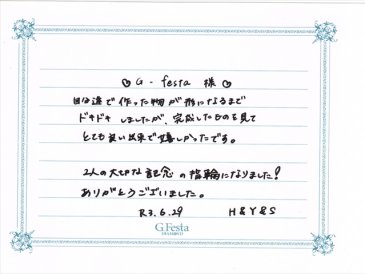 ♡ G - festa 様 ♡
自分達で作った物が形になるまで
ドキドキしましたが、完成したものを見て
とても良い出来で嬉しかったです。
2人の大切な記念の指輪になりました!
ありがとうございました。
R3.6.29 H&Y&S
G.Festa